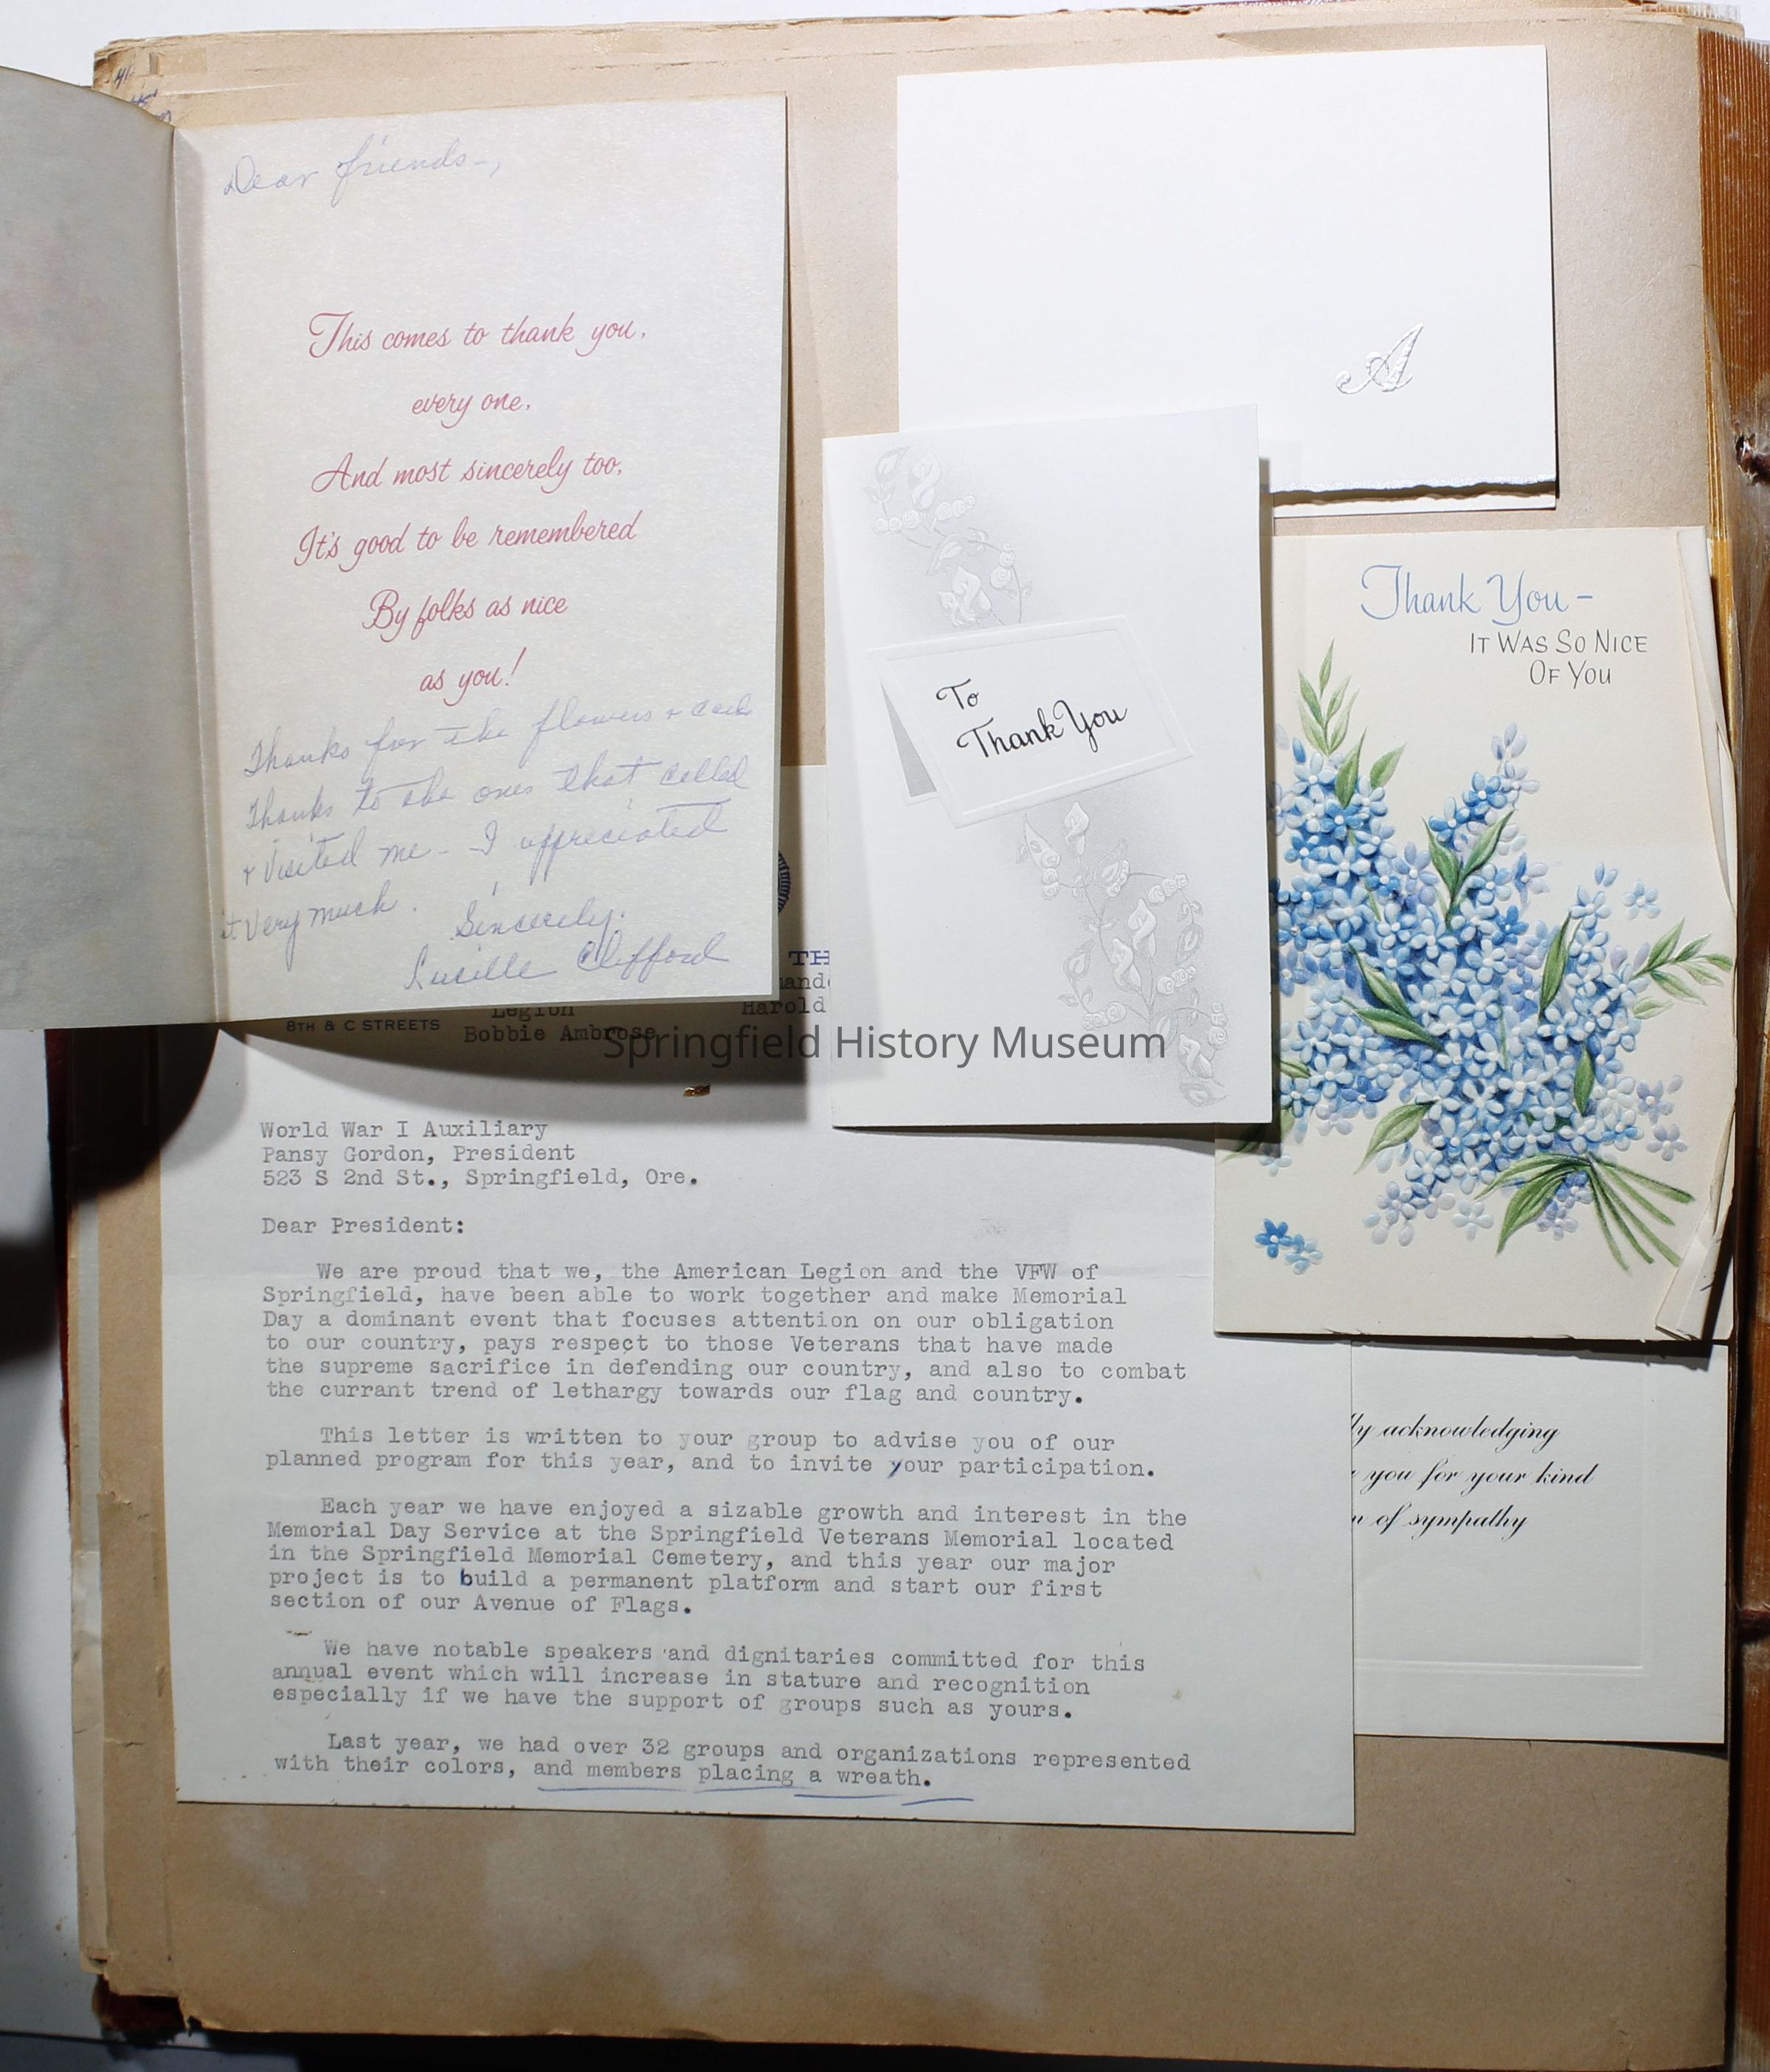 Dear friends-,
This comes to thank you,
every one,
And most sincerely too,
It's good to be remembered
By folks as nice
as you!
Thanks for the flowers + card
Thanks to the ones that called
+ visited me - I appreciated
it very much.
Sincerely,
Lucille Clifford
A
To
Thank You
Thank You-
IT WAS SO NICE
OF YOU
TH
Legion
Harold
8TH & C STREETS
Bobbie Ambrose
Springfield History Museum
World War I Auxiliary
Pansy Gordon, President
523 S 2nd St., Springfield, Ore.
Dear President:
We are proud that we, the American Legion and the VFW of
Springfield, have been able to work together and make Memorial
Day a dominant event that focuses attention on our obligation
to our country, pays respect to those Veterans that have made
the supreme sacrifice in defending our country, and also to combat
the currant trend of lethargy towards our flag and country.
This letter is written to your group to advise you of our
planned program for this year, and to invite your participation.
Each year we have enjoyed a sizable growth and interest in the
Memorial Day Service at the Springfield Veterans Memorial located
in the Springfield Memorial Cemetery, and this year our major
project is to build a permanent platform and start our first
section of our Avenue of Flags.
We have notable speakers and dignitaries committed for this
annual event which will increase in stature and recognition
especially if we have the support of groups such as yours.
Last year, we had over 32 groups and organizations represented
with their colors, and members placing a wreath.
acknowledging
you for your kind
of sympathy